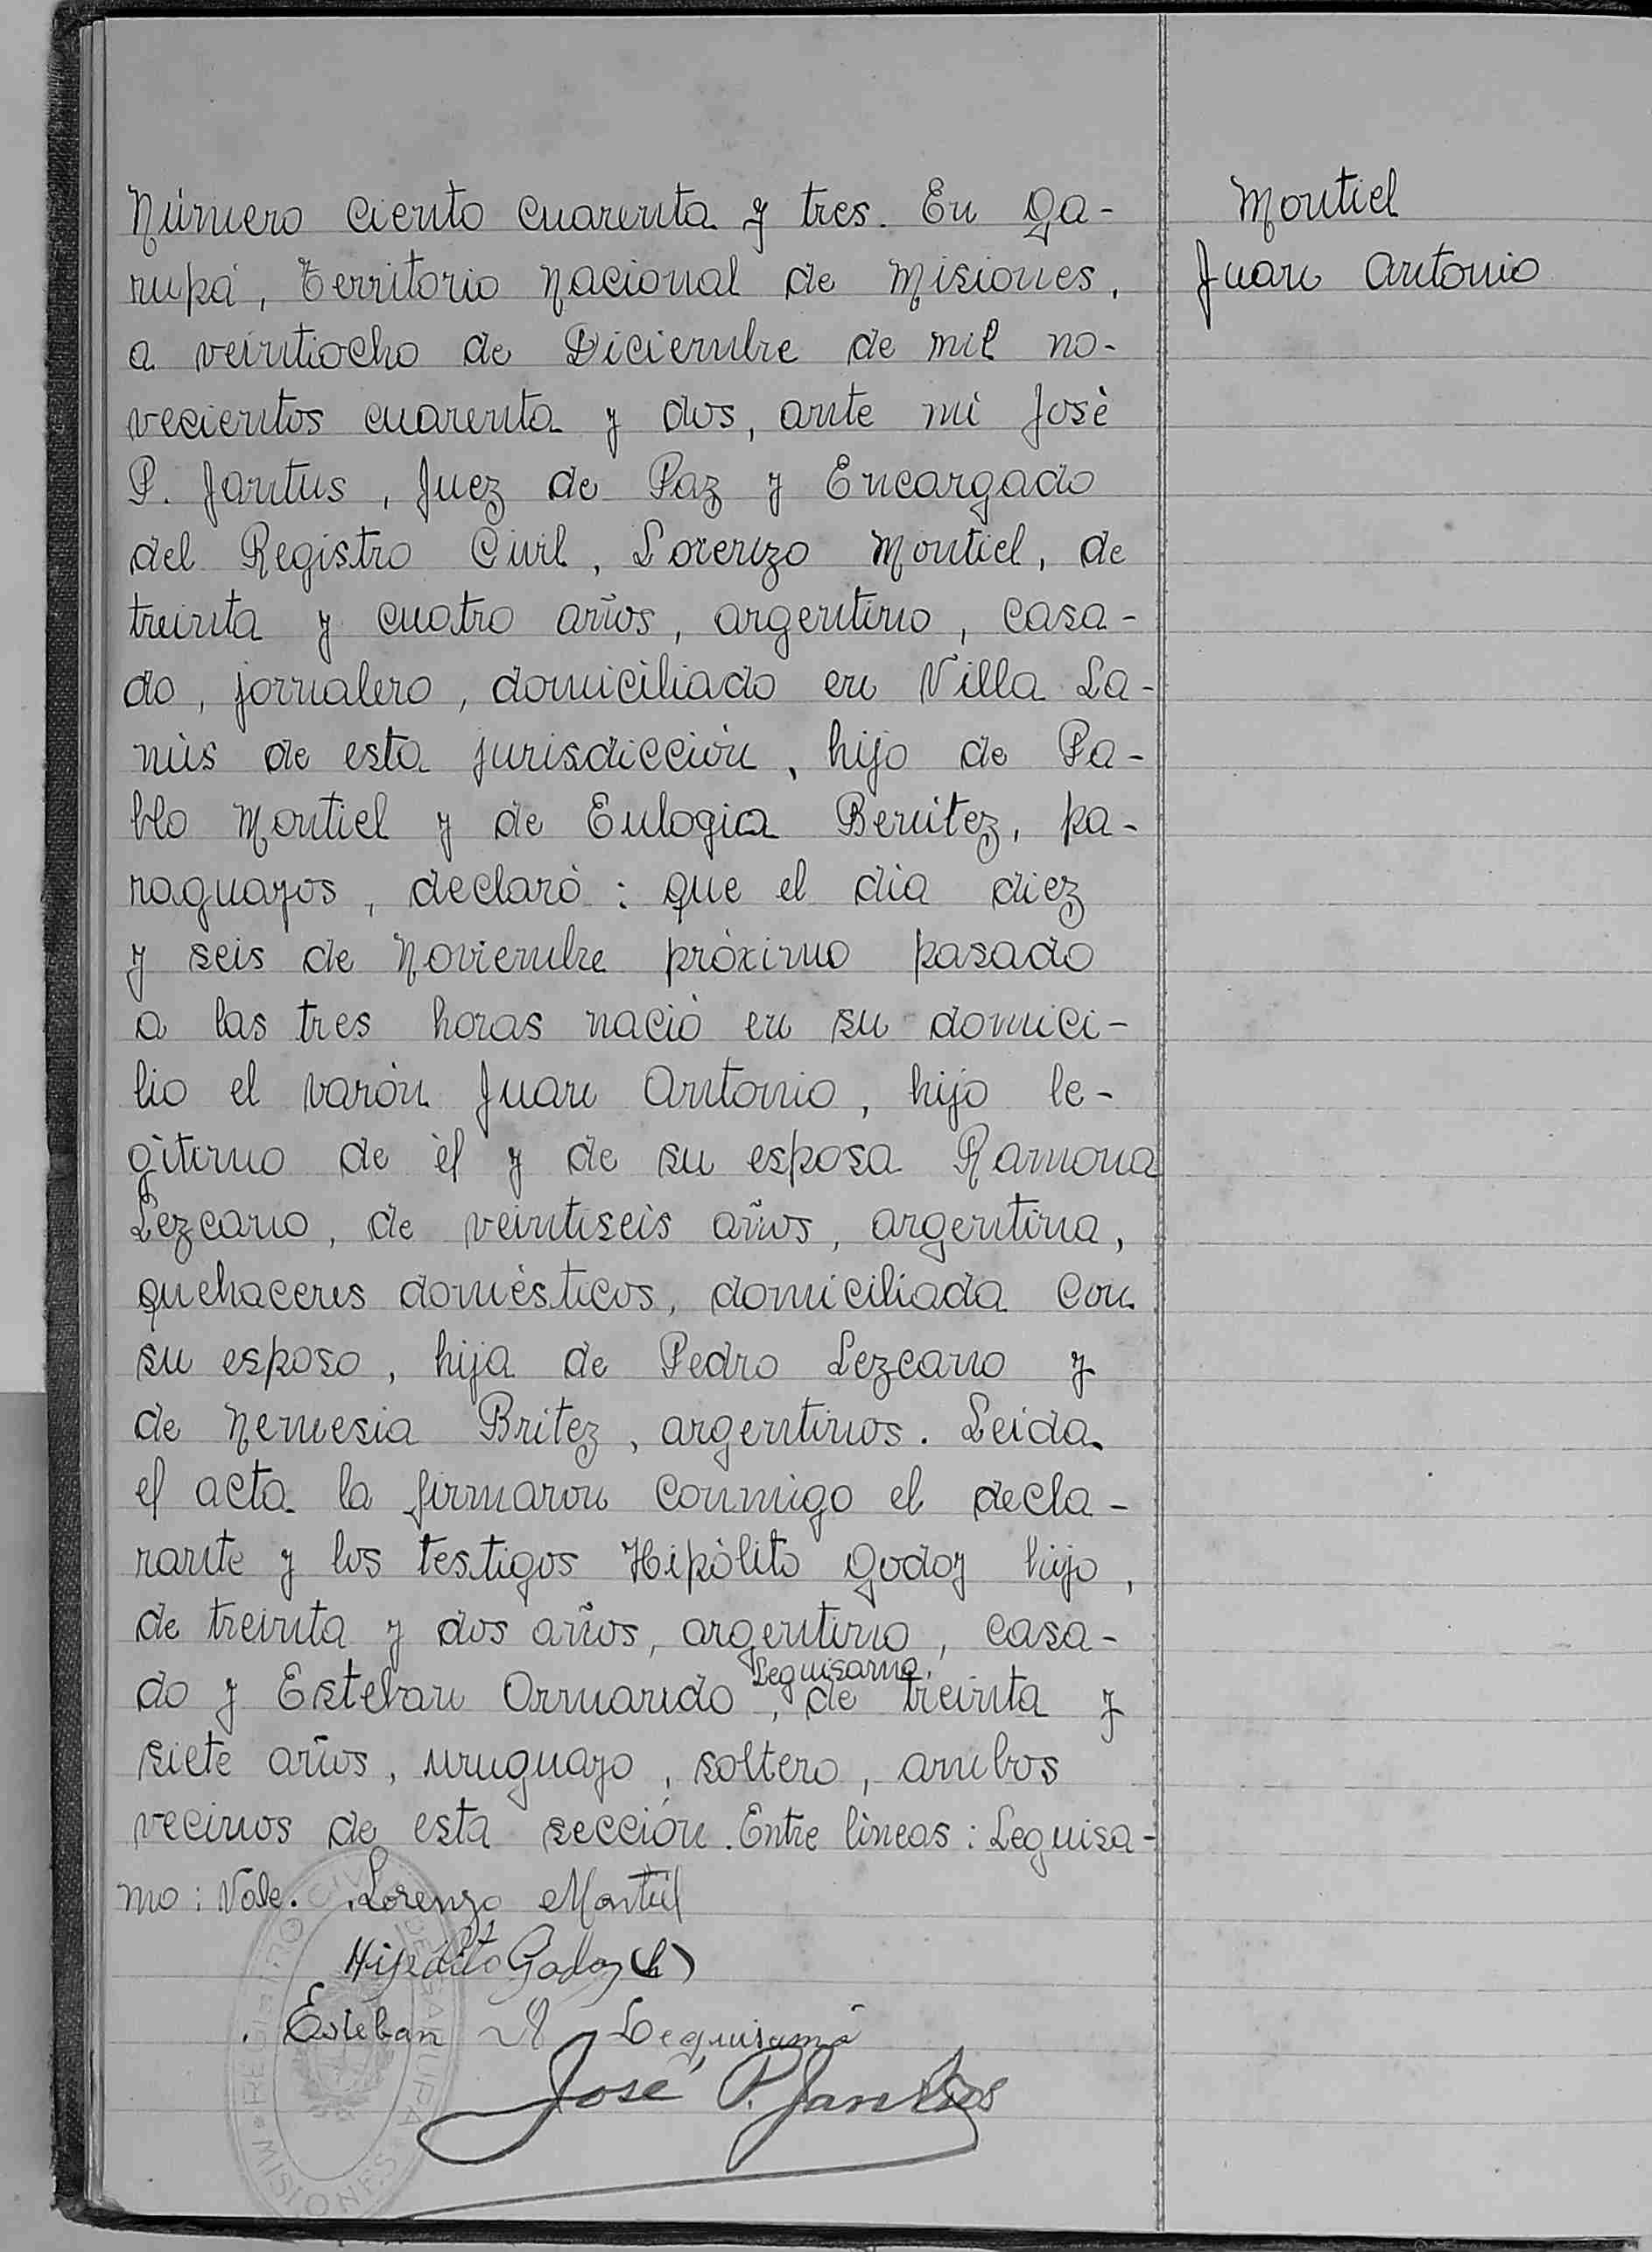 Número ciento cuarenta y tres. En Ga-
rupá, Territorio Nacional de Misiones,
a veintiocho de Diciembre de mil no-
vecientos cuarenta y dos, ante mí José
P. Jantus, Juez de Paz y Encargado
del Registro Civil, Lorenzo Montiel, de
treinta y cuatro años, argentino, casa-
do, jornalero, domiciliado en Villa La-
nús de esta jurisdicción, hijo de Pa-
blo Montiel y de Eulogia Benitez, pa-
raguayos, declaró: que el día diez
y seis de Noviembre próximo pasado
a las tres horas nació en su domici-
lio el varón Juan Antonio, hijo le-
gítimo de él y de su esposa Ramona
Lezcano, de veintiseis años, argentina,
quehaceres domésticos, domiciliada con
su esposo, hija de Pedro Lezcano y
de Nemesia Britez, argentinos. Leida
el acta la firmaron conmigo el decla-
rante y los testigos Hipólito Godoy hijo,
de treinta y dos años, argentino, casa-
Leguisamo,
do y Esteban Ormando, de treinta y
siete años, uruguayo, soltero, ambos
vecinos de esta sección. Entre líneas: Leguisa-
mo: Vale. Lorenzo Montiel
Hipólito Godoy (h)
Esteban Leguisamo
José P. Jantus
REGISTRO CIVIL DE GARUPA
MISIONES
Montiel
Juan Antonio